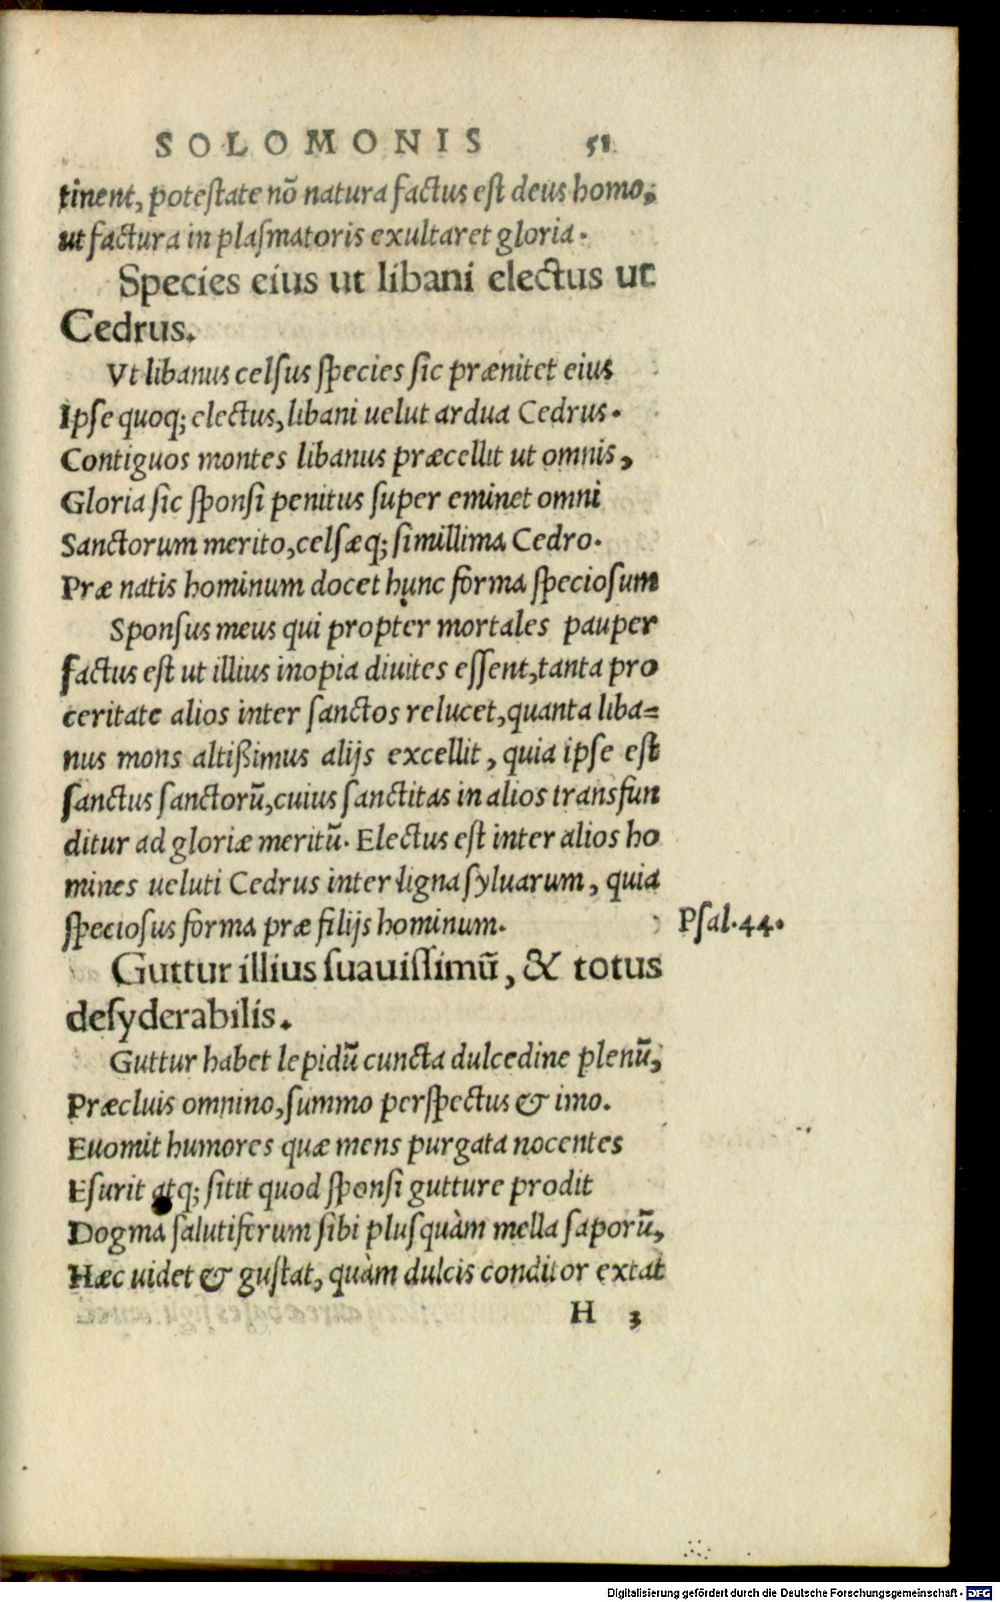 SOLOMONIS 58
tinent, potestate nō natura factus est deus homo,
ut factura in plasmatoris exultaret gloria.
Species eius ut libani electus ut
Cedrus.
Vt libanus celsus species sic prænitet eius
Ipse quoq; electus, libani uelut ardua Cedrus.
Contiguos montes libanus præcellit ut omnis,
Gloria sic sponsi penitus super eminet omni
Sanctorum merito, celsæq; simillima Cedro.
Præ natis hominum docet hunc forma speciosum
Sponsus meus qui propter mortales pauper
factus est ut illius inopia diuites essent, tanta pro
ceritate alios inter sanctos relucet, quanta liba=
nus mons altißimus alijs excellit, quia ipse est
sanctus sanctorū, cuius sanctitas in alios transfun
ditur ad gloriæ meritū. Electus est inter alios ho
mines ueluti Cedrus inter ligna syluarum, quia
speciosus forma præ filijs hominum.
Psal.44.
Guttur illius suauissimū, & totus
desyderabilis.
Guttur habet lepidū cuncta dulcedine plenū,
Præcluis omnino, summo perspectus & imo.
Euomit humores quæ mens purgata nocentes
Esurit atq; sitit quod sponsi gutture prodit
Dogma salutiferum sibi plusquàm mella saporū,
Hæc uidet & gustat, quàm dulcis conditor extat
H 3
Digitalisierung gefördert durch die Deutsche Forschungsgemeinschaft - DFG